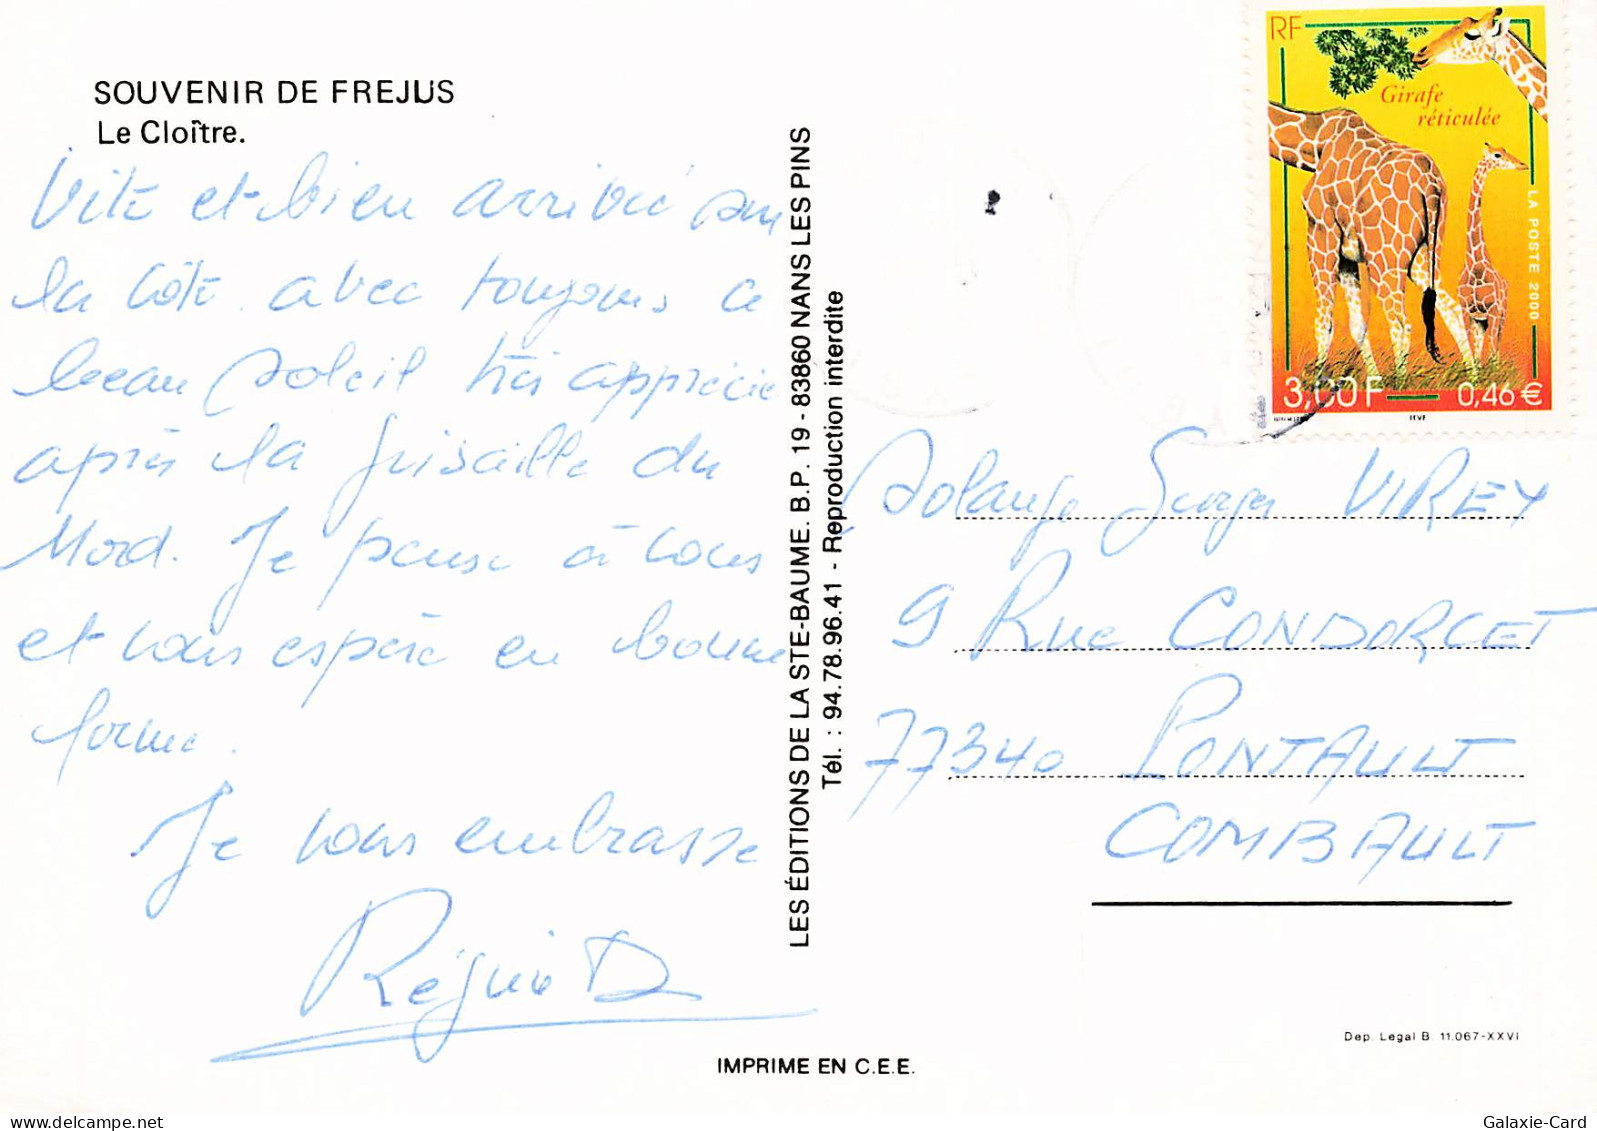 SOUVENIR DE FREJUS
Le Cloître.
Vite et bien arrivée sur
la côte avec toujours ce
beau soleil très apprécié
après la grisaille du
Nord. Je pense à vous
et vous espère en bonne
forme.
Je vous embrasse
Régine D
LES ÉDITIONS DE LA STE-BAUME. B.P. 19 - 83860 NANS LES PINS
Tél. : 94.78.96.41 - Reproduction interdite
IMPRIME EN C.E.E.
RF
Girafe
réticulée
LA POSTE 2000
3,00 F 0,46 €
ITVF
Solange Serge VIREY
9 Rue CONDORCET
77340 PONTAULT
COMBAULT
Dep. Legal B. 11.067-XXVI
Galaxie-Card